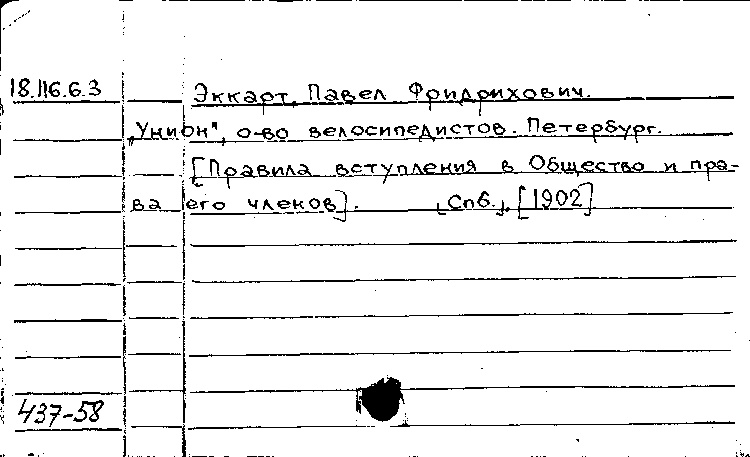 18.116.6.3 Эккарт, Павел Фридрихович.
„Унион", о-во велосипедистов. Петербург.
[Правила вступления в Общество и пра-
ва его членов]. [Спб.], [1902]
437-58